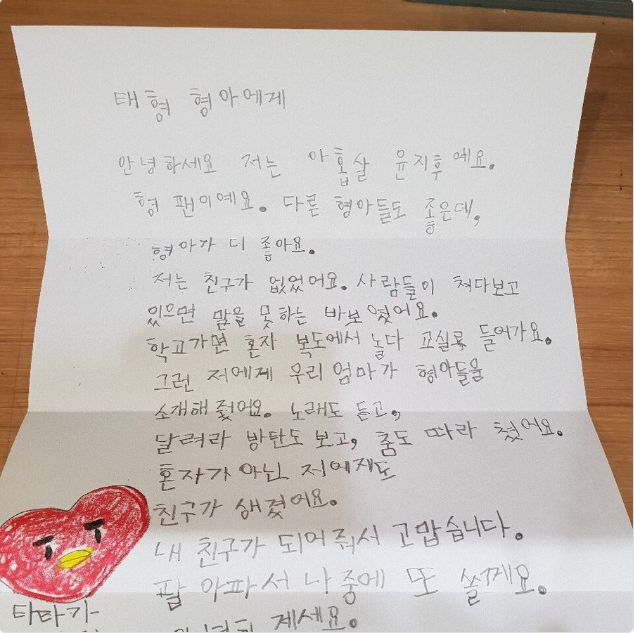 태형 형아에게
안녕하세요 저는 아홉살 윤지후예요.
형 팬이예요. 다른 형아들도 좋은데,
형아가 더 좋아요.
저는 친구가 없었어요. 사람들이 쳐다보고
있으면 말을 못하는 바보였어요.
학교가면 혼자 복도에서 놀다 교실로 들어가요.
그런 저에게 우리 엄마가 형아들을
소개해줬어요. 노래도 듣고,
달려라 방탄도 보고, 춤도 따라 췄어요.
혼자가 아닌 저에게도
친구가 생겼어요.
내 친구가 되어줘서 고맙습니다.
팔 아파서 나중에 또 쓸게요.
타타가
계세요.